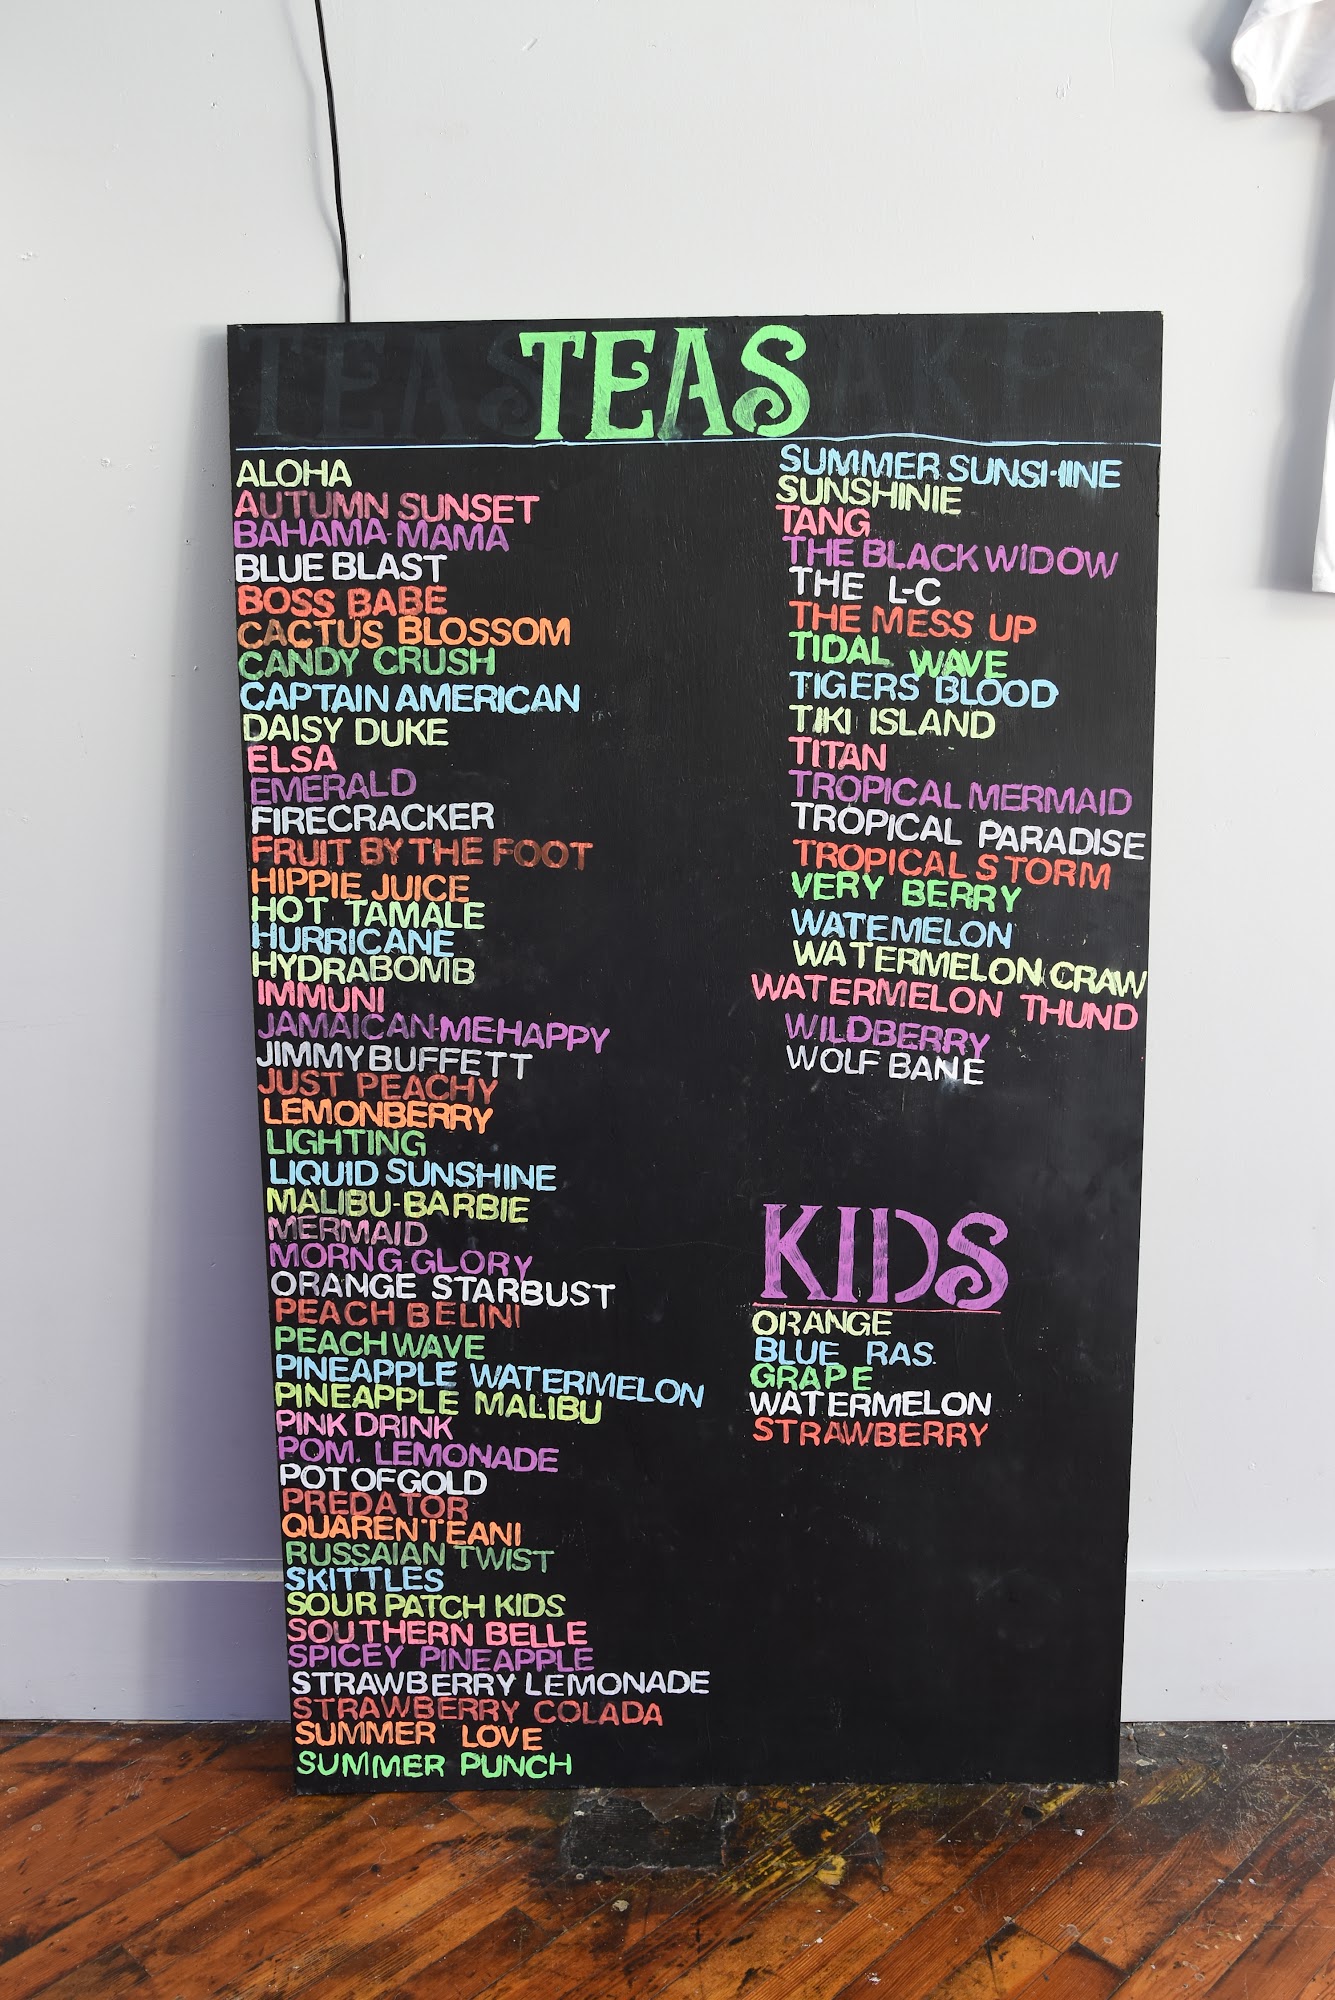 TEAS
ALOHA
AUTUMN SUNSET
BAHAMA-MAMA
BLUE BLAST
BOSS BABE
CACTUS BLOSSOM
CANDY CRUSH
CAPTAIN AMERICAN
DAISY DUKE
ELSA
EMERALD
FIRECRACKER
FRUIT BY THE FOOT
HIPPIE JUICE
HOT TAMALE
HURRICANE
HYDRABOMB
IMMUNI
JAMAICAN-ME-HAPPY
JIMMY BUFFETT
JUST PEACHY
LEMONBERRY
LIGHTING
LIQUID SUNSHINE
MALIBU-BARBIE
MERMAID
MORNG GLORY
ORANGE STARBUST
PEACH BELINI
PEACH WAVE
PINEAPPLE WATERMELON
PINEAPPLE MALIBU
PINK DRINK
POM. LEMONADE
POT OF GOLD
PREDATOR
QUARENTEANI
RUSSAIAN TWIST
SKITTLES
SOUR PATCH KIDS
SOUTHERN BELLE
SPICEY PINEAPPLE
STRAWBERRY LEMONADE
STRAWBERRY COLADA
SUMMER LOVE
SUMMER PUNCH
SUMMER SUNSHINE
SUNSHINIE
TANG
THE BLACK WIDOW
THE L-C
THE MESS UP
TIDAL WAVE
TIGERS BLOOD
TIKI ISLAND
TITAN
TROPICAL MERMAID
TROPICAL PARADISE
TROPICAL STORM
VERY BERRY
WATEMELON
WATERMELON CRAW
WATERMELON THUND
WILDBERRY
WOLF BANE
KIDS
ORANGE
BLUE RAS.
GRAPE
WATERMELON
STRAWBERRY